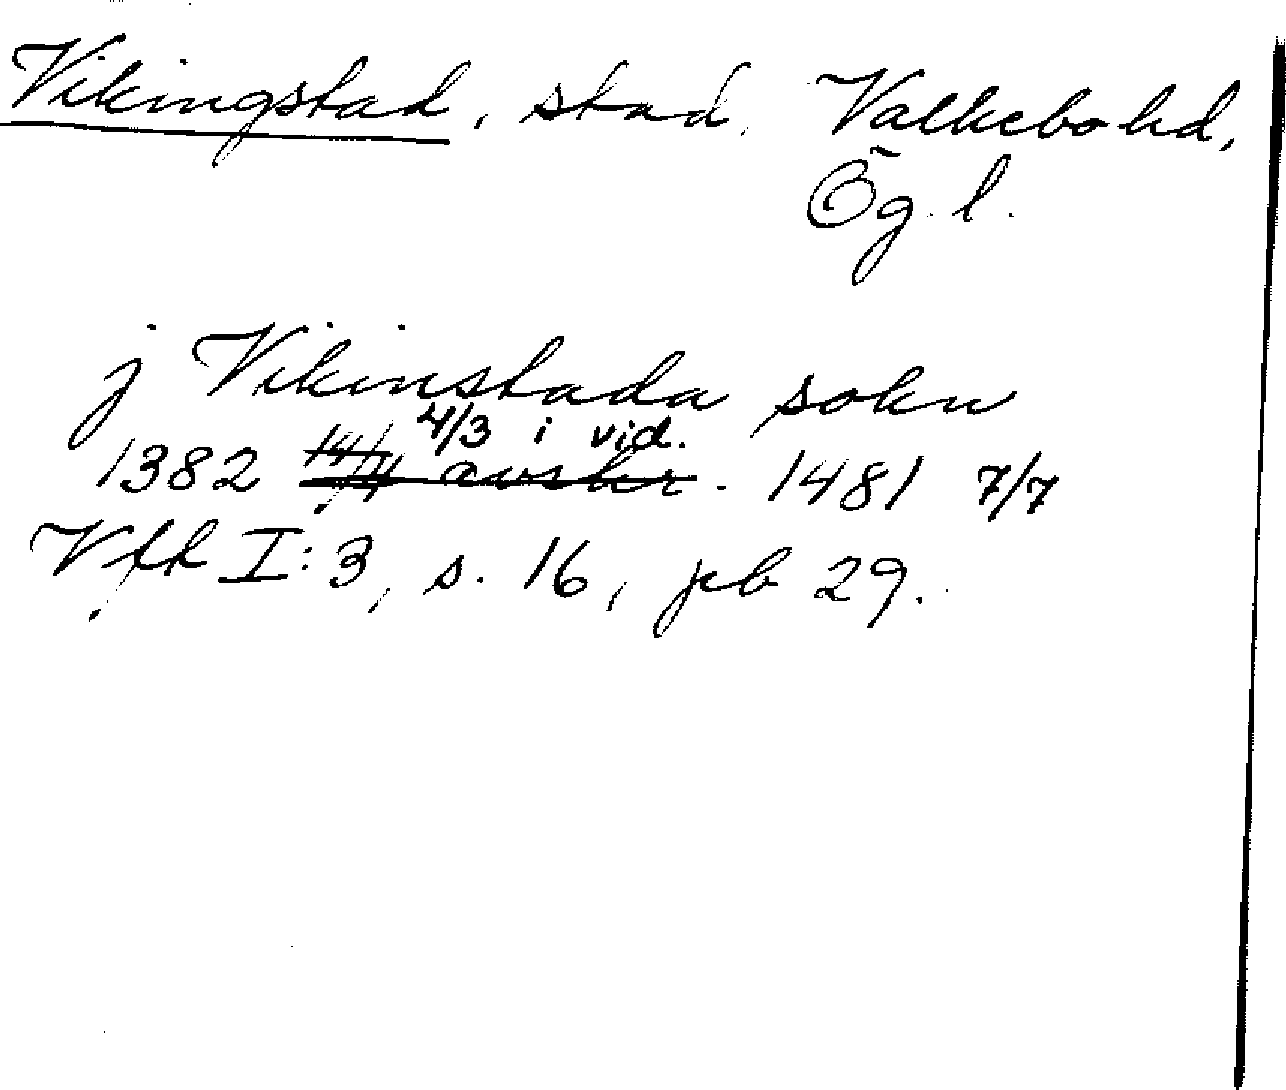 Vikingstad, stad, Valkebo hd,
Ög. l.
j Vikinstada sokn
4/3 i vid.
1382 14/4 avskr. 1481 7/7
Vfk I:3, s. 16, peb 29.